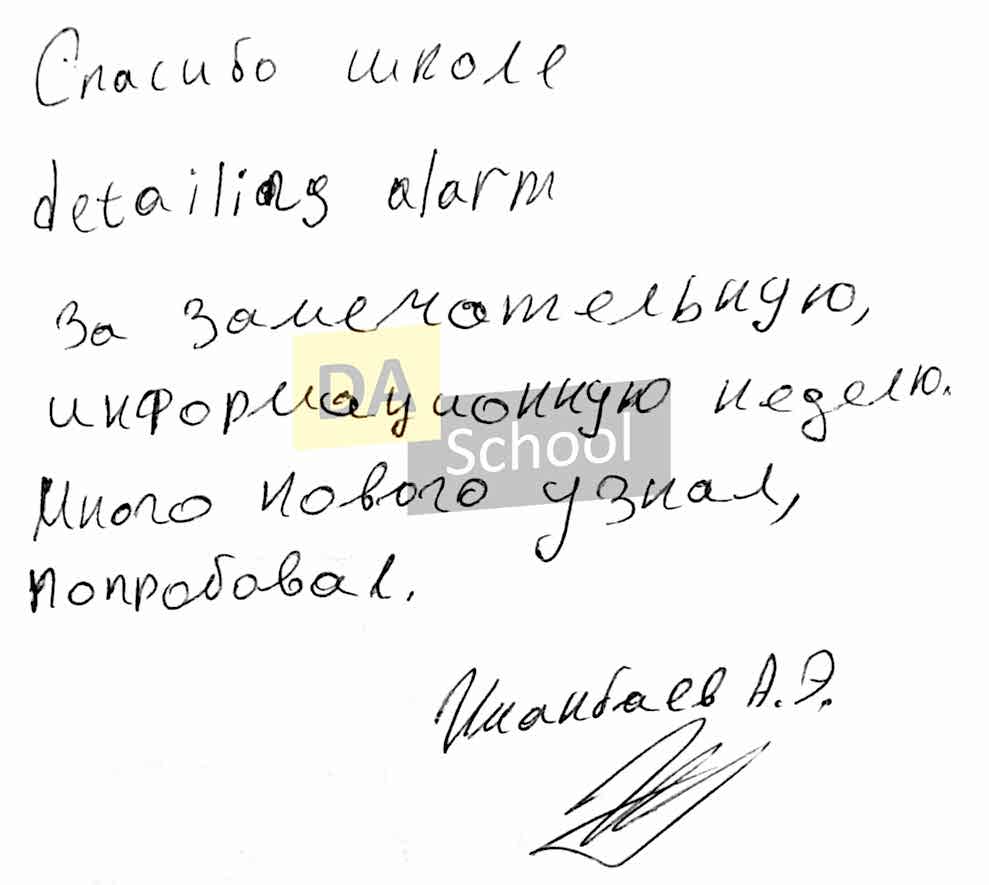 Спасибо школе
detailing alarm
за замечательную,
информационную неделю.
Много нового узнал,
попробовал.
Иманбаев А.Э.
DA
School